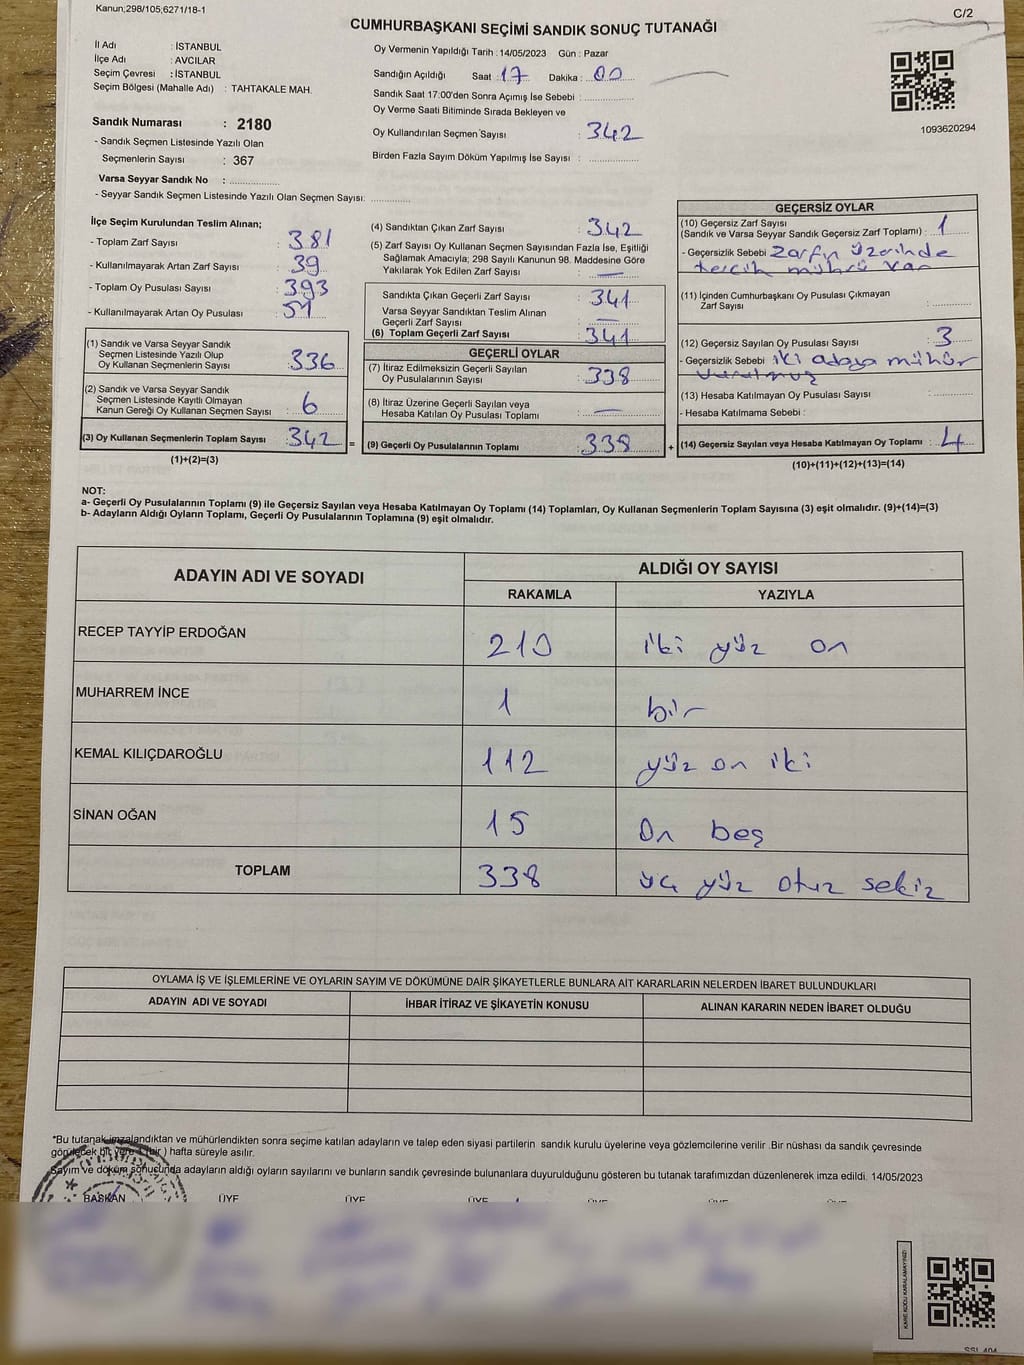 Kanun;298/105;6271/18-1
C/2
CUMHURBAŞKANI SEÇİMİ SANDIK SONUÇ TUTANAĞI
İl Adı : İSTANBUL
İlçe Adı : AVCILAR
Seçim Çevresi : İSTANBUL
Seçim Bölgesi (Mahalle Adı) : TAHTAKALE MAH.
Sandık Numarası : 2180
- Sandık Seçmen Listesinde Yazılı Olan
Seçmenlerin Sayısı : 367
Varsa Seyyar Sandık No : ..............
- Seyyar Sandık Seçmen Listesinde Yazılı Olan Seçmen Sayısı: ............
Oy Vermenin Yapıldığı Tarih : 14/05/2023 Gün : Pazar
Sandığın Açıldığı Saat : 17 Dakika : 00
Sandık Saat 17:00'den Sonra Açımış İse Sebebi : ..............
Oy Verme Saati Bitiminde Sırada Bekleyen ve
Oy Kullandırılan Seçmen Sayısı : 342
Birden Fazla Sayım Döküm Yapılmış İse Sayısı : ..............
1093620294
İlçe Seçim Kurulundan Teslim Alınan;
- Toplam Zarf Sayısı : 381
- Kullanılmayarak Artan Zarf Sayısı : 39
- Toplam Oy Pusulası Sayısı : 393
- Kullanılmayarak Artan Oy Pusulası : 51
(1) Sandık ve Varsa Seyyar Sandık
Seçmen Listesinde Yazılı Olup
Oy Kullanan Seçmenlerin Sayısı : 336
(2) Sandık ve Varsa Seyyar Sandık
Seçmen Listesinde Kayıtlı Olmayan
Kanun Gereği Oy Kullanan Seçmen Sayısı : 6
(3) Oy Kullanan Seçmenlerin Toplam Sayısı : 342 =
(1)+(2)=(3)
(4) Sandıktan Çıkan Zarf Sayısı : 342
(5) Zarf Sayısı Oy Kullanan Seçmen Sayısından Fazla İse, Eşitliği
Sağlamak Amacıyla; 298 Sayılı Kanunun 98. Maddesine Göre
Yakılarak Yok Edilen Zarf Sayısı : —
Sandıkta Çıkan Geçerli Zarf Sayısı : 341
Varsa Seyyar Sandıktan Teslim Alınan
Geçerli Zarf Sayısı : —
(6) Toplam Geçerli Zarf Sayısı : 341
GEÇERLİ OYLAR
(7) İtiraz Edilmeksizin Geçerli Sayılan
Oy Pusulalarının Sayısı : 338
(8) İtiraz Üzerine Geçerli Sayılan veya
Hesaba Katılan Oy Pusulası Toplamı : —
(9) Geçerli Oy Pusulalarının Toplamı : 338 +
GEÇERSİZ OYLAR
(10) Geçersiz Zarf Sayısı
(Sandık ve Varsa Seyyar Sandık Geçersiz Zarf Toplamı) : 1
- Geçersizlik Sebebi Zarfın üzerinde
tercih mührü var
(11) İçinden Cumhurbaşkanı Oy Pusulası Çıkmayan
Zarf Sayısı : ............
(12) Geçersiz Sayılan Oy Pusulası Sayısı : 3
- Geçersizlik Sebebi iki adaya mühür
vurulmuş
(13) Hesaba Katılmayan Oy Pusulası Sayısı : ............
- Hesaba Katılmama Sebebi :
(14) Geçersiz Sayılan veya Hesaba Katılmayan Oy Toplamı : 4
(10)+(11)+(12)+(13)=(14)
NOT:
a- Geçerli Oy Pusulalarının Toplamı (9) ile Geçersiz Sayılan veya Hesaba Katılmayan Oy Toplamı (14) Toplamları, Oy Kullanan Seçmenlerin Toplam Sayısına (3) eşit olmalıdır. (9)+(14)=(3)
b- Adayların Aldığı Oyların Toplamı, Geçerli Oy Pusulalarının Toplamına (9) eşit olmalıdır.
ADAYIN ADI VE SOYADI
ALDIĞI OY SAYISI
RAKAMLA YAZIYLA
RECEP TAYYİP ERDOĞAN 210 iki yüz on
MUHARREM İNCE 1 bir
KEMAL KILIÇDAROĞLU 112 yüz on iki
SİNAN OĞAN 15 On beş
TOPLAM 338 üç yüz otuz sekiz
OYLAMA İŞ VE İŞLEMLERİNE VE OYLARIN SAYIM VE DÖKÜMÜNE DAİR ŞİKAYETLERLE BUNLARA AİT KARARLARIN NELERDEN İBARET BULUNDUKLARI
ADAYIN ADI VE SOYADI İHBAR İTİRAZ VE ŞİKAYETİN KONUSU ALINAN KARARIN NEDEN İBARET OLDUĞU
*Bu tutanak imzalandıktan ve mühürlendikten sonra seçime katılan adayların ve talep eden siyasi partilerin sandık kurulu üyelerine veya gözlemcilerine verilir .Bir nüshası da sandık çevresinde
görülecek bir yere 1 (bir ) hafta süreyle asılır.
Sayım ve döküm sonucunda adayların aldığı oyların sayılarını ve bunların sandık çevresinde bulunanlara duyurulduğunu gösteren bu tutanak tarafımızdan düzenlenerek imza edildi. 14/05/2023
BAŞKAN ÜYE ÜYE ÜYE ÜYE ÜYE ÜYE
KARE KODU KARALAMAYINIZ!